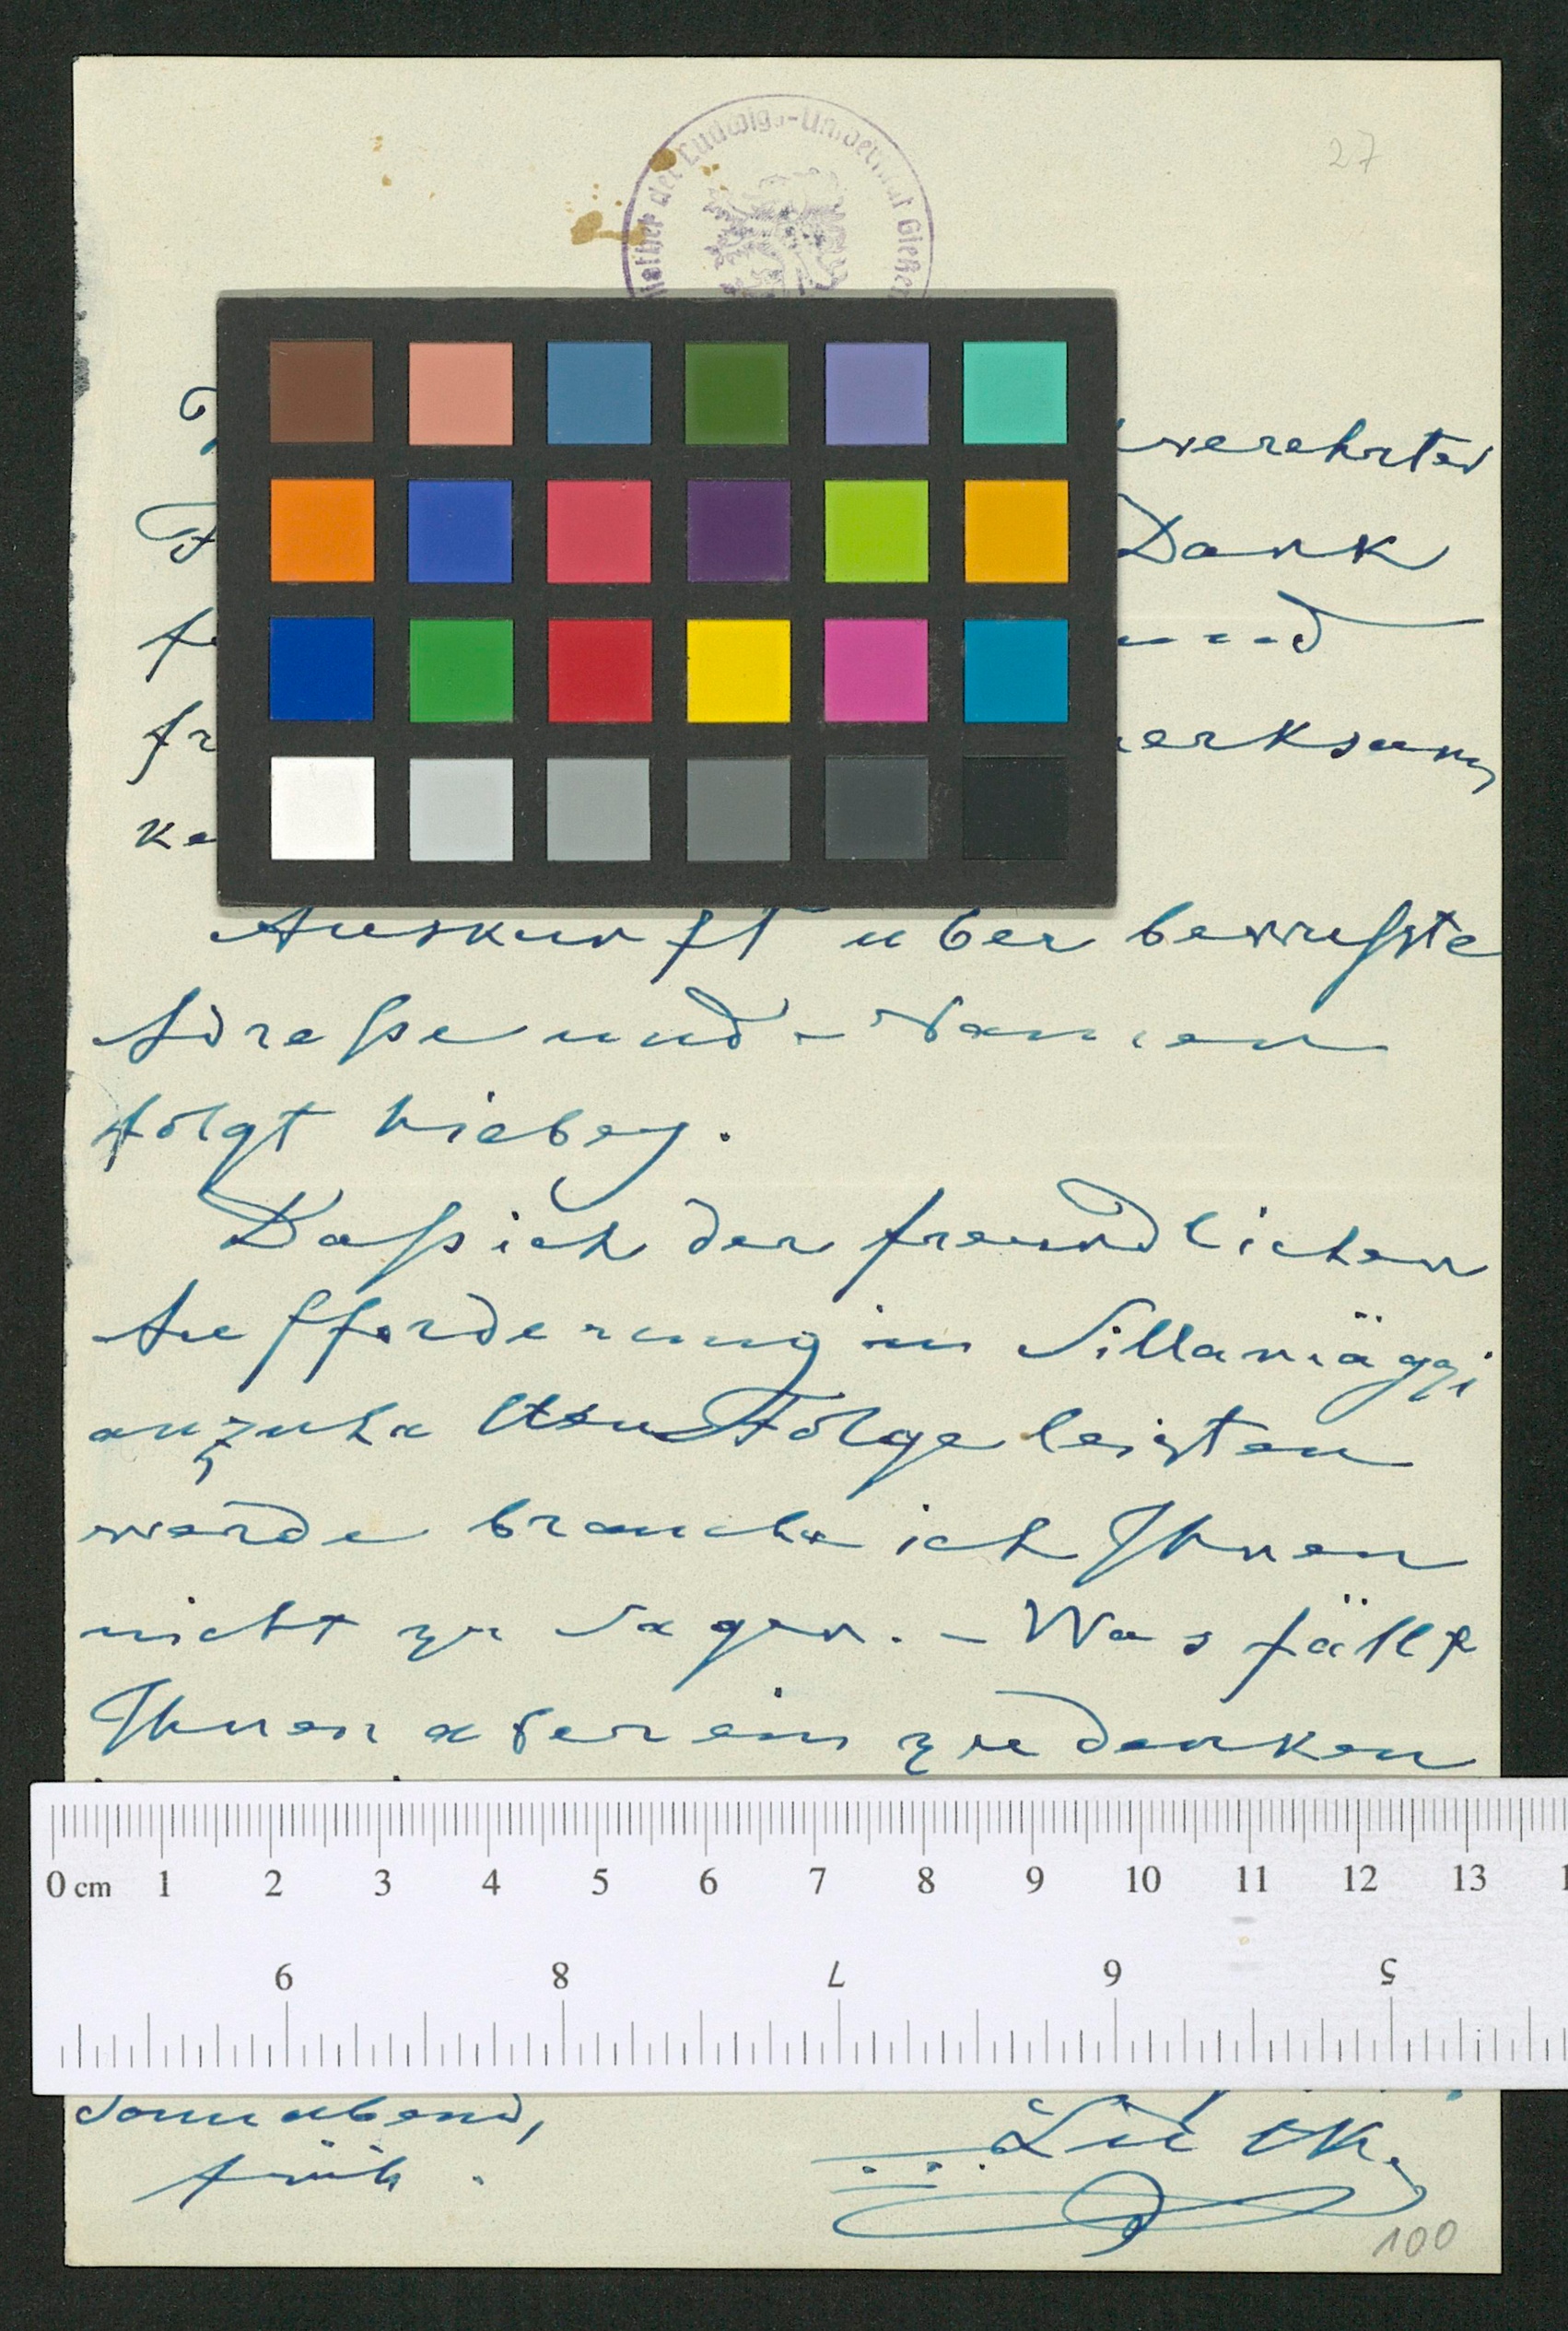 27
der Ludwigs-Universität Gießen
verehrter
Dank
und
fr
merksam
ke
Auskunft über bewußte
Adreße und - Namen
folgt hiebey.
Daß ich der freundlichen
Aufforderung in Sillamäggi
anzuhalten Folge leisten
werde brauche ich Ihnen
nicht zu sagen. - Was fällt
Ihnen aber ein zu denken
0 cm 1 2 3 4 5 6 7 8 9 10 11 12 13 1
9 8 7 6 5
Sonnabend,
früh.
100